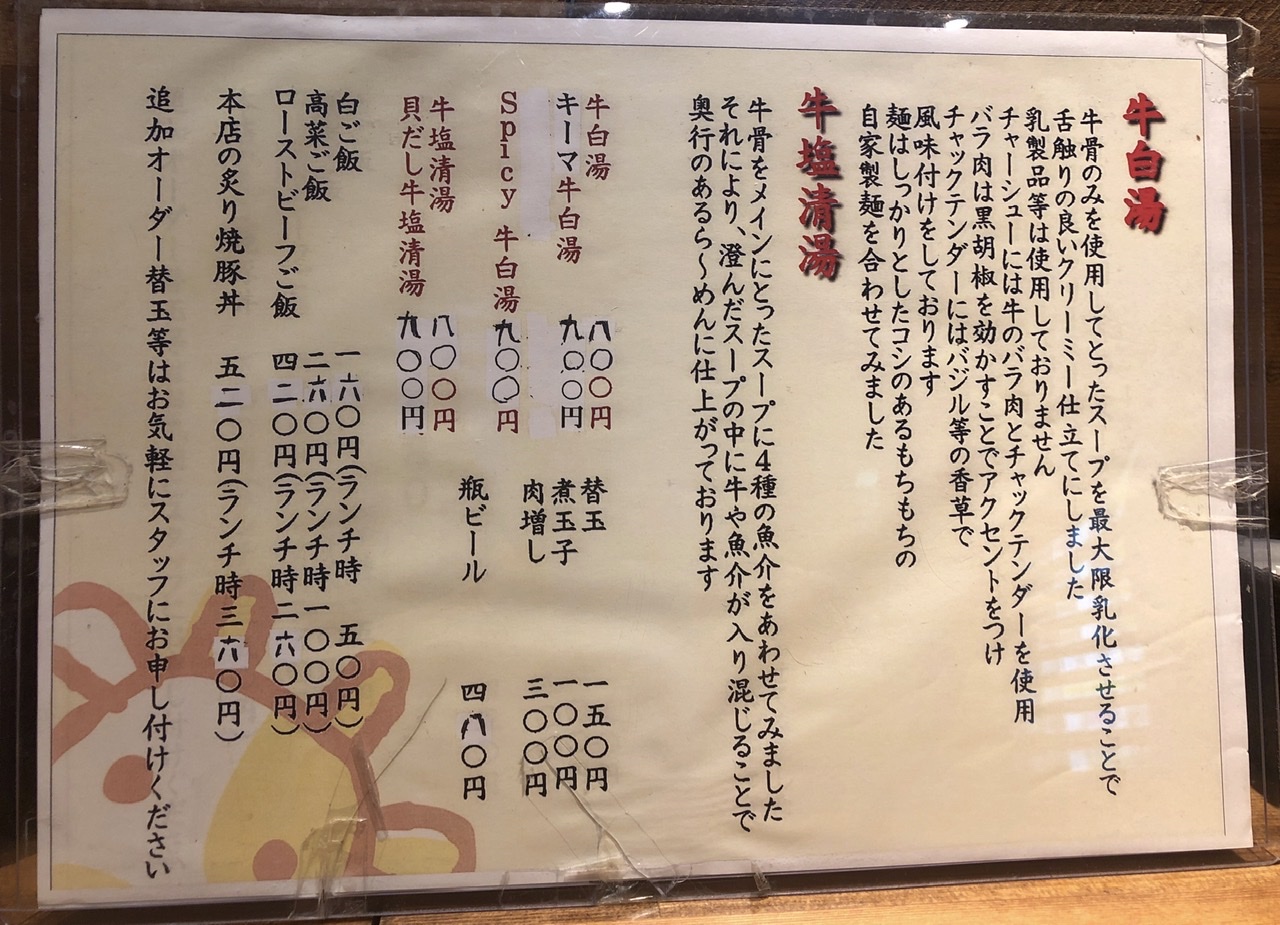 牛白湯
牛骨のみを使用してとったスープを最大限乳化させることで
舌触りの良いクリーミー仕立てにしました
乳製品等は使用しておりません
チャーシューには牛のバラ肉とチャックテンダーを使用
バラ肉は黒胡椒を効かすことでアクセントをつけ
チャックテンダーにはバジル等の香草で
風味付けをしております
麺はしっかりとしたコシのあるもちもちの
自家製麺を合わせてみました
牛塩清湯
牛骨をメインにとったスープに4種の魚介をあわせてみました
それにより、澄んだスープの中に牛や魚介が入り混じることで
奥行のあるら〜めんに仕上がっております
牛白湯 八〇〇円
キーマ牛白湯 九〇〇円
Spicy牛白湯 九〇〇円
牛塩清湯 八〇〇円
貝だし牛塩清湯 九〇〇円
替玉 一五〇円
煮玉子 一〇〇円
肉増し 三〇〇円
瓶ビール 四八〇円
白ご飯 一六〇円(ランチ時 五〇円)
高菜ご飯 二六〇円(ランチ時 一〇〇円)
ローストビーフご飯 四二〇円(ランチ時二六〇円)
本店の炙り焼豚丼 五二〇円(ランチ時三六〇円)
追加オーダー替玉等はお気軽にスタッフにお申し付けください